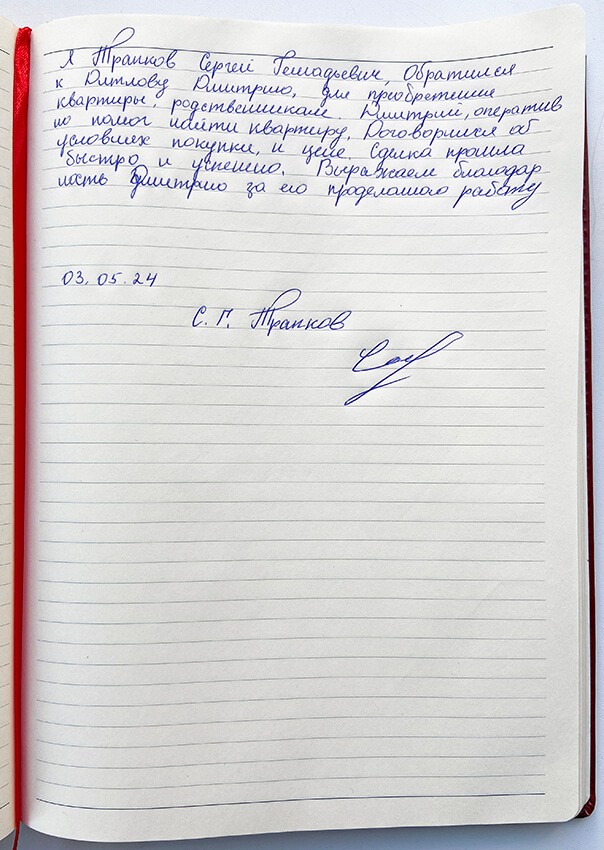 Я Трапков Сергей Геннадьевич, Обратился
к Дятлову Дмитрию, для приобретение
квартиры, родственникам. Дмитрий, оператив
но помог найти квартиру, Договорился об
условиях покупки, и цене. Сделка прошла
быстро и успешно. Выражаем благодар
ность Дмитрию за его проделанного работу
03.05.24
С. Г. Трапков